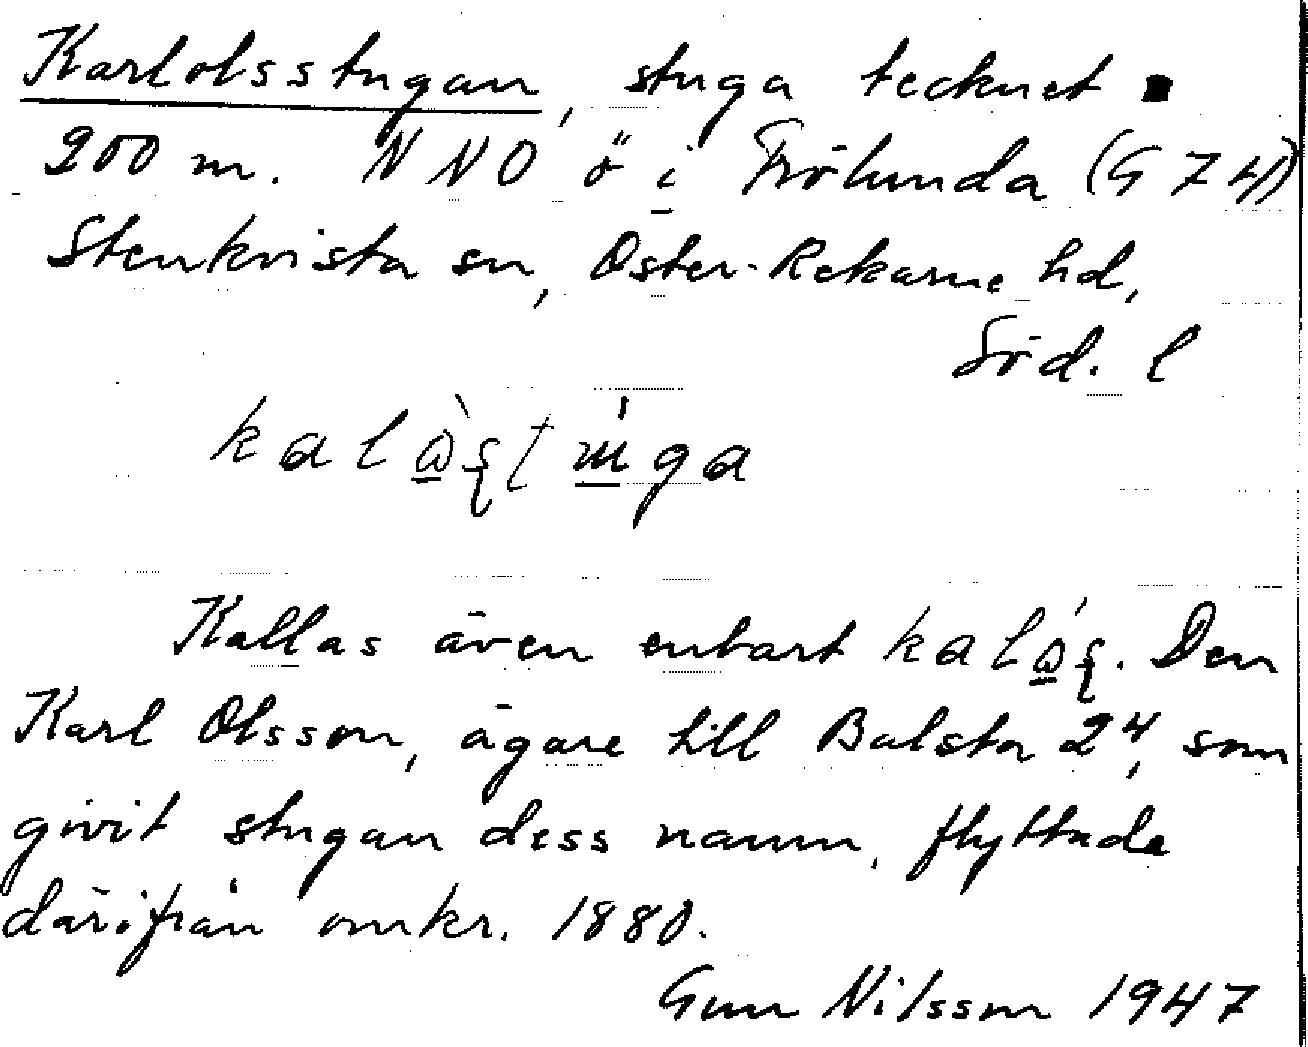 Karlolsstugan, stuga tecknet ▪
200 m. NNO ö i Frölunda (G 74)
Stenkvista sn, Öster-Rekarne hd,
Söd. l
Kallas även enbart Den
Karl Olsson, ägare till Balsta 24, som
givit stugan dess namn, flyttade
därifrån omkr. 1880.
Gun Nilsson 1947